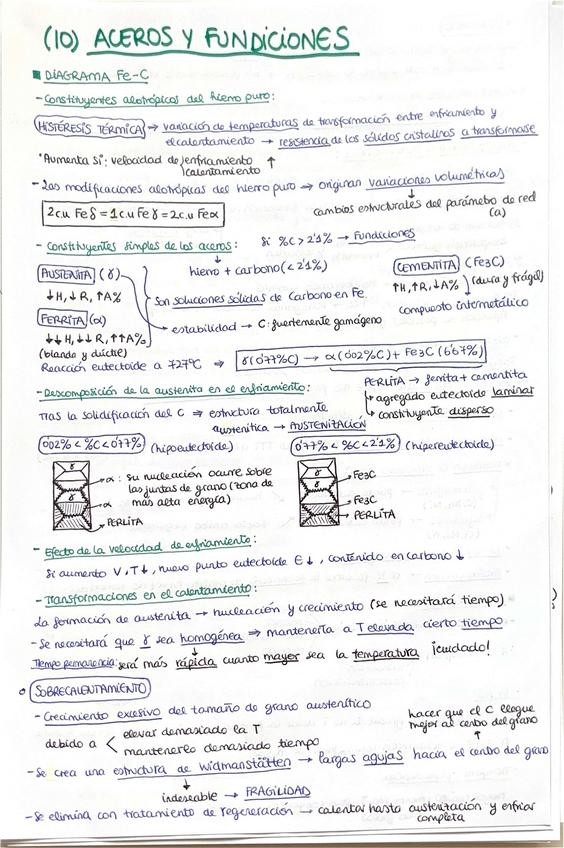 (10) ACEROS Y FUNDICIONES
■ DIAGRAMA Fe-C
- Constituyentes alotrópicos del hierro puro:
HISTÉRESIS TÉRMICA → variación de temperaturas de transformación entre enfriamiento y
el calentamiento → resistencia de los sólidos cristalinos a transformarse
*Aumenta si: velocidad de enfriamiento ↑
calentamiento
- Las modificaciones alotrópicas del hierro puro → originan variaciones volumétricas
2c.u Feδ = 1c.u Feγ = 2c.u Feα
cambios estructurales del parámetro de red
(a)
- Constituyentes simples de los aceros: Si %C > 2'1% → Fundiciones
hierro + carbono (< 2'1%)
AUSTENITA (γ)
↓H, ↓R, ↑A%
FERRITA (α)
↓↓H, ↓↓R, ↑↑A%
(blanda y dúctil)
Son soluciones sólidas de Carbono en Fe.
estabilidad → C: fuertemente gamágeno
CEMENTITA (Fe3C)
↑H, ↑R, ↓A% (dura y frágil)
compuesto intermetálico
Reacción eutectoide a 727ºC ⇒ γ(0'77%C) → α(0'02%C) + Fe3C (6'67%)
PERLITA → ferrita + cementita
→ agregado eutectoide laminar
→ constituyente disperso
- Descomposición de la austenita en el enfriamiento:
Tras la solidificación del C ⇒ estructura totalmente
austenítica → AUSTENITACIÓN
0'02% < %C < 0'77% (hipoeutectoide)
0'77% < %C < 2'1% (hipereutectoide)
γ
γ
α: su nucleación ocurre sobre
las juntas de grano (zona de
más alta energía)
α
PERLITA
γ
γ
Fe3C
Fe3C
PERLITA
- Efecto de la velocidad de enfriamiento:
Si aumento V, T↓, nuevo punto eutectoide E↓, contenido en carbono ↓
- Transformaciones en el calentamiento:
La formación de austenita → nucleación y crecimiento (se necesitará tiempo)
- Se necesitará que γ sea homogénea ⇒ mantenerla a T elevada cierto tiempo
Tiempo permanencia será más rápida cuanto mayor sea la temperatura ¡cuidado!
○ SOBRECALENTAMIENTO
- Crecimiento excesivo del tamaño de grano austenítico
debido a < elevar demasiado la T
mantenerlo demasiado tiempo
hacer que el C llegue
mejor al centro del grano
- Se crea una estructura de Widmanstätten → largas agujas hacia el centro del grano
indeseable → FRAGILIDAD
- Se elimina con tratamiento de regeneración → calentar hasta austenización y enfriar
completa